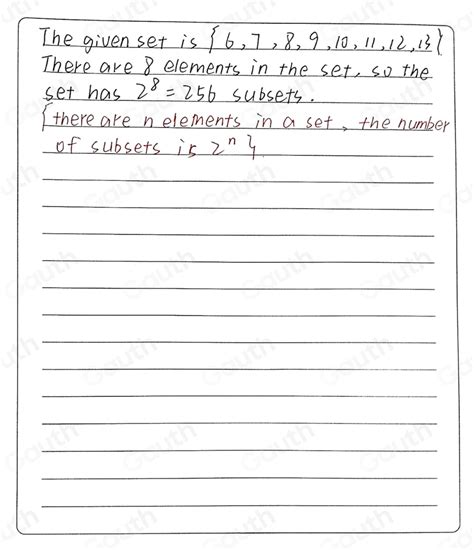 The given set is { 6, 7, 8, 9, 10, 11, 12, 13 {
There are 8 elements in the set, so the
set has 2⁸ = 256 subsets.
{ there are n elements in a set, the number
of subsets is 2ⁿ }
Gauth